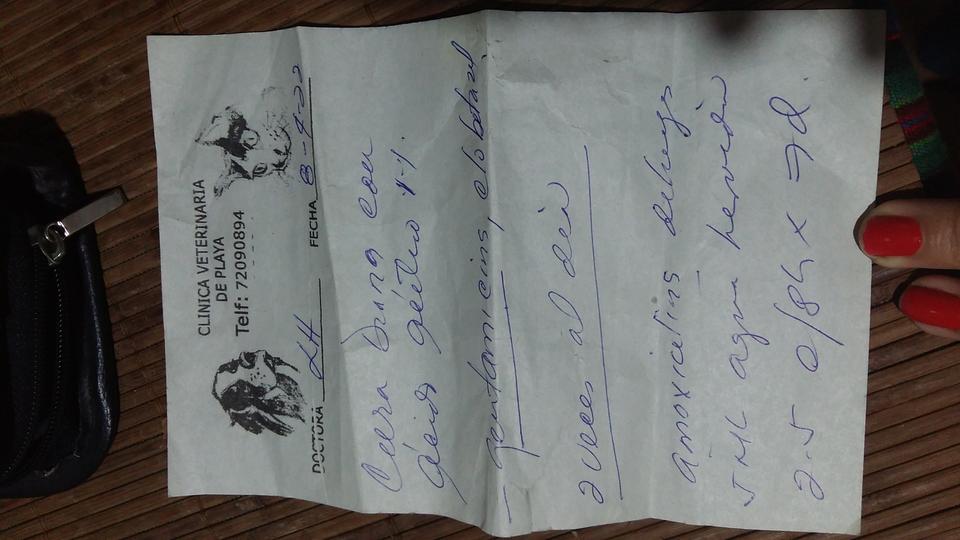 CLINICA VETERINARIA
DE PLAYA
Telf: 72090894
DOCTORA LH FECHA 8-9-22
con
ácido 1%.
- gentamicina, clobetasol,
2 veces al día
amoxicilina
5 ML agua hervida
2.5 c/8h x 7d.